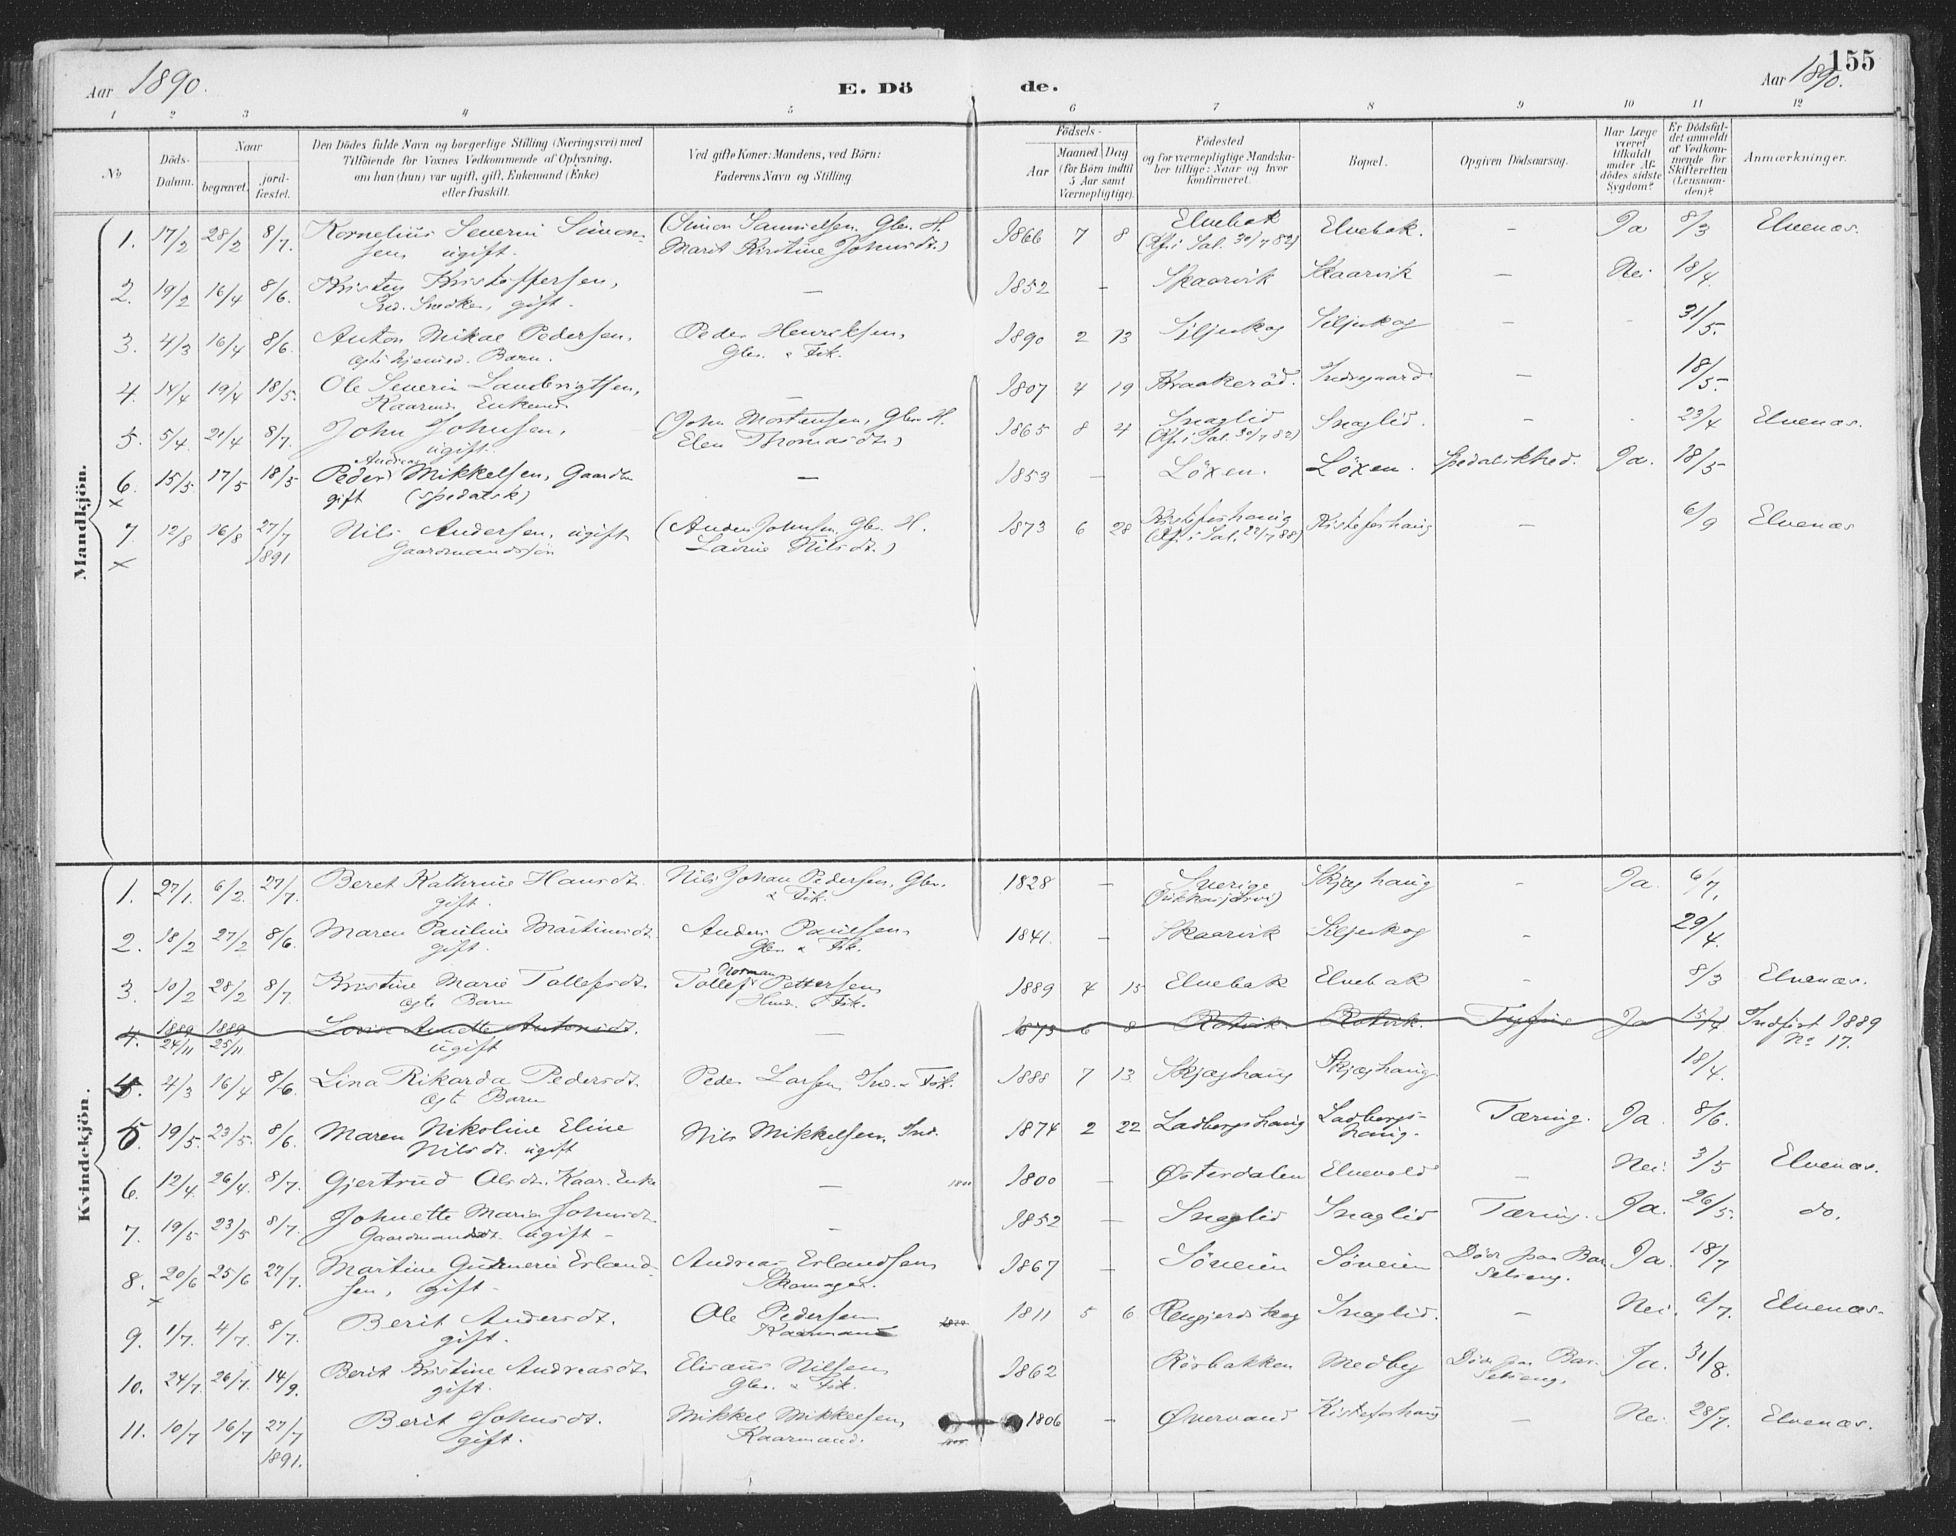 155
Aar 1890. E. Dö de. Aar 1890.
1 2 3 4 5 6 7 8 9 10 11 12
No
Döds-
Datum.
Naar
begravet.
jord-
fæstet.
Den Dödes fulde Navn og borgerlige Stilling (Næringsvei) med
Tilföiende for Voxnes Vedkommende af Oplysning,
om han (hun) var ugift, gift, Enkemand (Enke)
eller fraskilt.
Ved gifte Koner: Mandens, ved Börn:
Faderens Navn og Stilling.
Födsels-
Aar
Maaned Dag
(for Börn indtil
5 Aar samt
Værnepligtige).
Födested
og for værnepligtige Mandska-
ber tillige: Naar og hvor
konfirmeret.
Bopæl.
Opgiven Dödsaarsag.
Har Læge
været
tilkaldt
under Af-
dödes sidste
Sygdom?
Er Dödsfal-
det anmeldt
af Vedkom-
mende for
Skifteretten
(Lensman-
den)?
Anmærkninger.
Mandkjön.
1. 17/2 28/2 8/7. Kornelius Severin Simon- (Simon Samuelsen, Gbr. H. 1866 7 8 Elvebak Elvebak. - Ja 8/3 Elvenæs.
sen ugift. Marit Kristine Johnsdt.) (Kf. i Sal. 30/7 82)
2. 19/2 16/4 8/6. Kristen Kristoffersen, - 1852 - Skaarvik Skaarvik - Nei 18/4.
Ind. Snedker, gift.
3. 4/3 16/4 8/6. Anton Mikal Pedersen, Peder Henriksen, 1890 2 13 Siljeskog Siljeskog - - 31/5.
ægte hjemmed. Barn. Gbr. & Fisk.
4. 14/4 19/4 18/5. Ole Severin Lambrigtsen, - 1807 4 19 Kraakeröd. Indregaard - 18/5.
Kaarmd. Enkemd.
5. 5/4 21/4 8/7. John Johnsen, (John Mortensen, Gbr. H. 1865 8 4 Snaglid Snaglid. - - 23/4 Elvenæs.
ugift. Elen Thomasdt.) (Kf. i Sal. 30/7 82)
Andreas
6. 15/5 17/5 18/5 Peder Mikkelsen, Gaardbr. - 1853 - Löxen. Löxen. Spedalskhed. Ja. 18/5
× gift (spedalsk)
7. 12/8 16/8 27/7 Nils Andersen, ugift (Anders Johnsen, Gbr. H. 1873 6 28 Kistefoshaug Kistefoshaug - 6/9 Elvenæs
× 1891 Gaardmandssön Lavine Nilsdt.) (Kf. i Sal. 22/7 88)
Kvindekjön.
1. 27/1. 6/2. 27/7. Beret Kathrine Hansdt. Nils Johan Pedersen, Gbr. 1828 - Sverige Skjæghaug - Ja. 6/7.
gift. & Fisk.
2. 18/2 27/2 8/6. Maren Pauline Martinusdt. Anders Paulsen, 1841. - Skaarvik Siljeskog - 29/4.
gift. Gbr. & Fisk.
Norman
3. 10/2 28/2 8/7. Kristine Marie Tollefsdt. Tollef Pettersen, 1889 4 15 Elvebak Elvebak - 8/3 Elvenæs.
ægte Barn Hmd. & Fisk.
4. 1889 1889 Lovise Anette Antonsdt. - 1873 6 8 Rotvik Rotvik. Tyfus Ja 15/4 Indfört 1889
24/11 25/11 ugift No 17.
4. 4/3 16/4 8/6. Lina Rikarda Pedersdt. Peder Larsen, Ind. & Fisk. 1888 7 13 Skjæghaug Skjæghaug 18/4.
ægte Barn
5. 19/5. 23/5. 8/6. Maren Nikoline Eline Nils Mikkelsen, Ind. 1874 2 22 Ladbergshaug Ladbergs- Tæring. Ja. 8/6.
Nilsdt. ugift haug.
6. 12/4. 26/4. 8/7. Gjertrud Olsdt. Kaar. Enke - 1800 - Österdalen Elvevold - Nei 3/5 Elvenæs.
7. 19/5 23/5 8/7. Johnette Maria Johnsdt. - 1852 - Snaglid Snaglid Tæring. Ja. 26/5. do.
Gaardmandsdt. ugift -
8. 20/6 25/6 27/7. Martine Erland- Andreas Erlandsen, 1867 - Söveien Söveien Död paa Bar- Ja. 18/7
× sen, gift - Skomager. selseng.
9. 1/7. 4/7. 8/7. Berit Andersdt. Ole Pedersen 1811 5 6 Rengjerdskog Snaglid. - Nei. 6/7. Elvenæs.
gift. Kaarmand
10. 24/7. 26/7. 14/9. Berit Kristine Andreasdt. Elisæus Nilsen, 1862 Rösbakken Medby Död paa Bar- Ja. 31/8.
gift. Gbr. & Fisk. selseng.
11. 10/7 16/7 27/7 Berit Johnsdt. Mikkel Mikkelsen, 1806 - Övervand Kistefoshaug - Nei 28/7. Elvenæs.
1891. gift. Kaarmand.